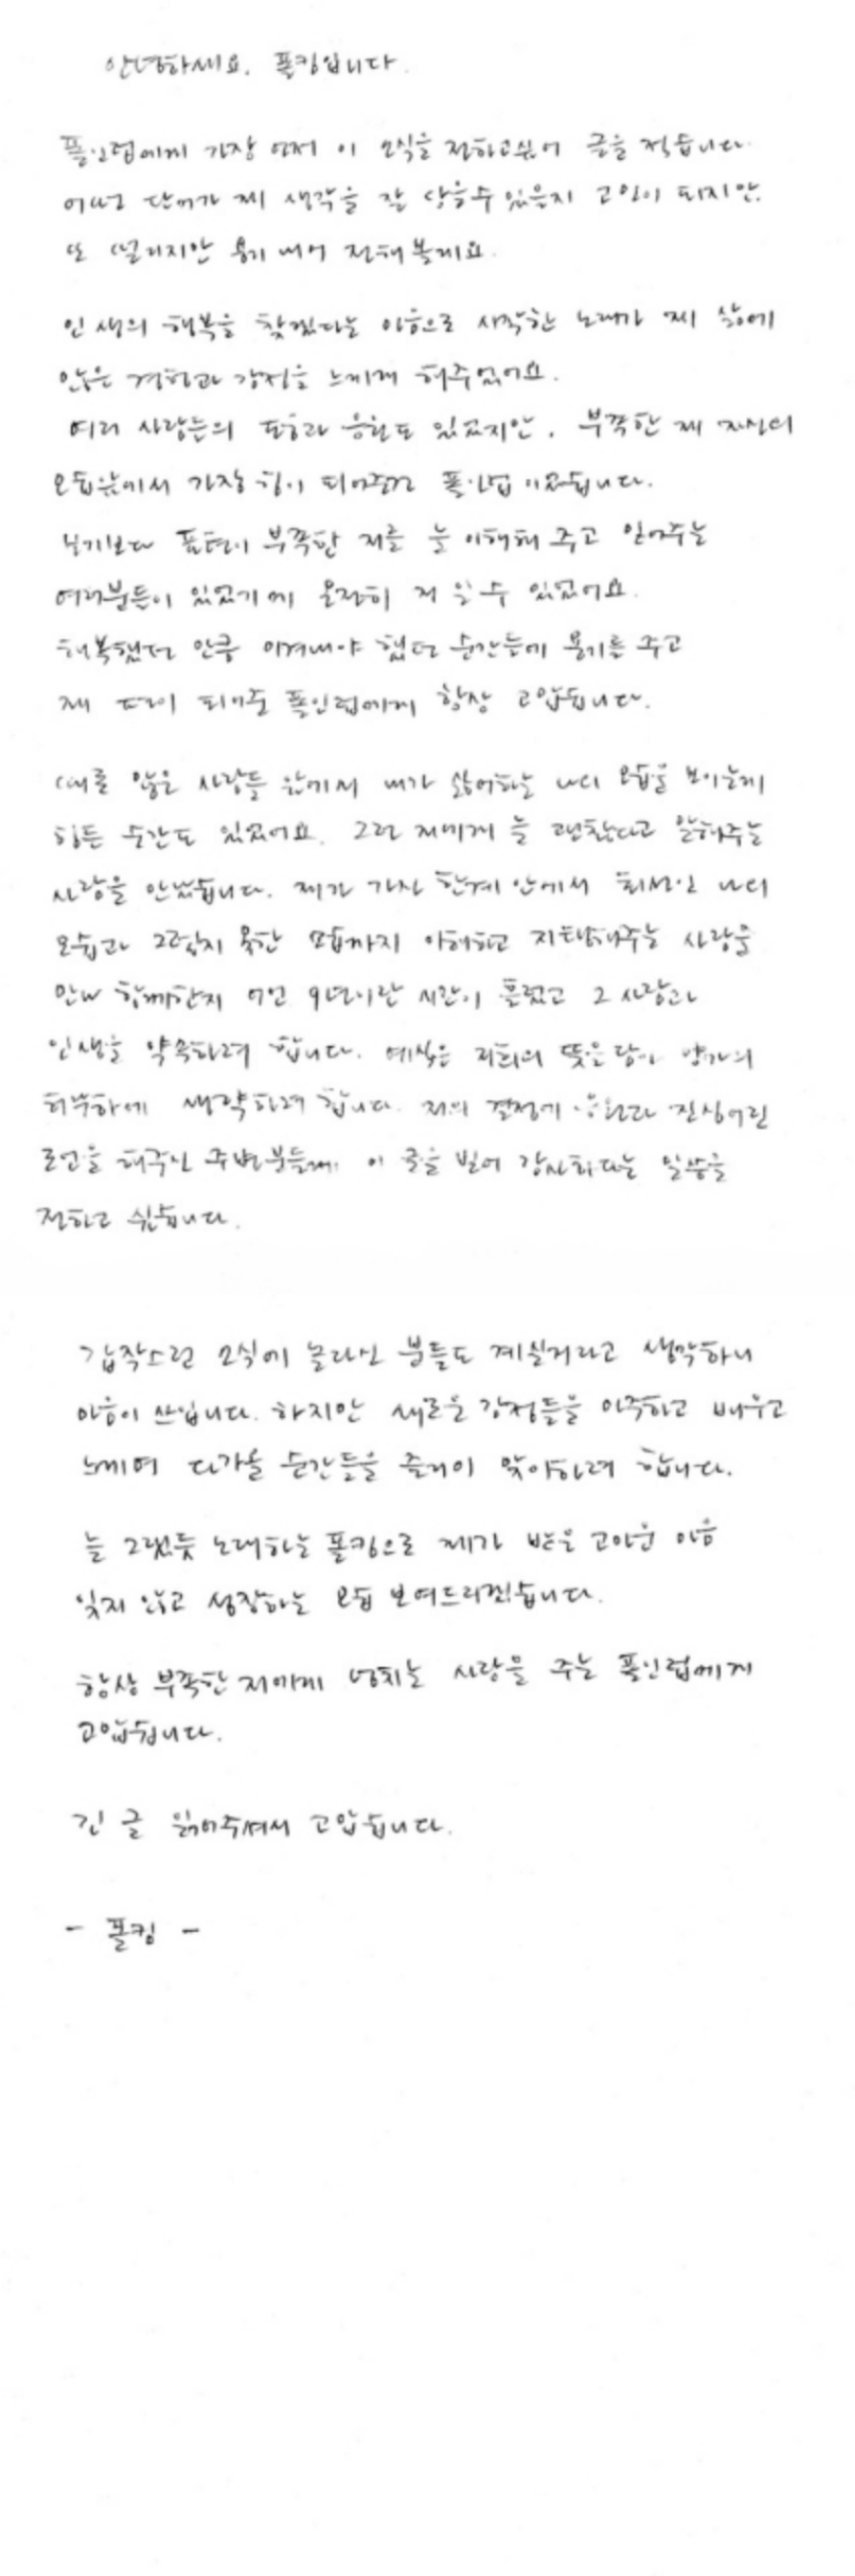 안녕하세요. 폴킴입니다.
폴인럽에게 가장 먼저 이 소식을 전하고싶어 글을 적습니다.
어떤 단어가 제 생각을 잘 담을수 있을지 고민이 되지만,
또 떨리지만 용기 내어 전해 볼게요.
인생의 행복을 찾겠다는 마음으로 시작한 노래가 제 삶에
많은 경험과 감정을 느끼게 해주었어요.
여러 사람들의 도움과 응원도 있었지만, 부족한 제 자신의
모습앞에서 가장 힘이 되어준건 폴인럽 이었습니다.
보기보다 표현이 부족한 저를 늘 이해해 주고 믿어주는
여러분들이 있었기에 온전히 저 일 수 있었어요.
행복했던 만큼 이겨내야 했던 순간들에 용기를 주고
제 편이 되어준 폴인럽에게 항상 고맙습니다.
때론 많은 사람들 앞에서 내가 싫어하는 나의 모습을 보이는게
힘든 순간도 있었어요. 그런 저에게 늘 괜찮다고 말해주는
사람을 만났습니다. 제가 가진 한계 안에서 최선인 나의
모습과 그렇지 못한 모습까지 이해하고 지탱해주는 사람을
만나 함께한지 어언 9년이란 시간이 흘렀고 그 사람과
인생을 약속하려 합니다. 예식은 저희의 뜻을 담아 양가의
허락하에 생략하려 합니다. 저의 결정에 응원과 진심어린
조언을 해주신 주변분들께 이 글을 빌어 감사하다는 말씀을
전하고 싶습니다.
갑작스런 소식에 놀라신 분들도 계실거라고 생각하니
마음이 쓰입니다. 하지만 새로운 감정들을 마주하고 배우고
느끼며 다가올 순간들을 즐거이 맞이하려 합니다.
늘 그랬듯 노래하는 폴킴으로 제가 받은 고마운 마음
잊지 않고 성장하는 모습 보여드리겠습니다.
항상 부족한 저에게 넘치는 사랑을 주는 폴인럽에게
고맙습니다.
긴 글 읽어주셔서 고맙습니다.
- 폴킴 -